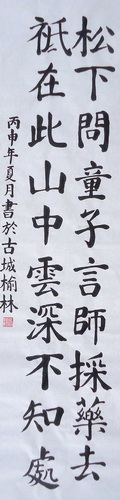 松下問童子言師採藥去
祗在此山中雲深不知處
丙申年夏月書於古城榆林